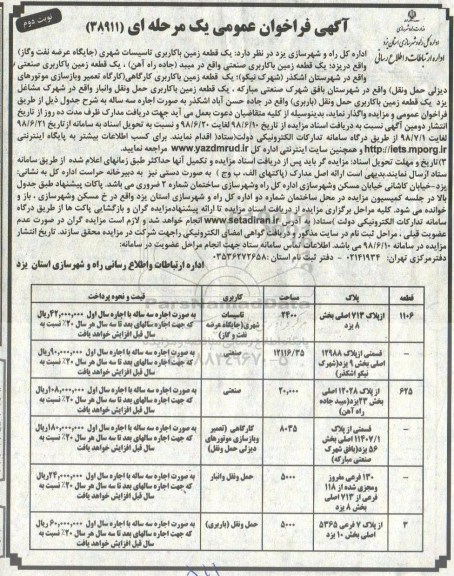 نوبت دوم
آگهی فراخوان عمومی یک مرحله ای (۳۸۹۱۱)
اداره کل راه و شهرسازی یزد در نظر دارد: یک قطعه زمین باکاربری تاسیسات شهری (جایگاه عرضه نفت وگاز)
واقع دریزد؛ یک قطعه زمین باکاربری صنعتی واقع در میبد (جاده راه آهن) ، یک قطعه زمین باکاربری صنعتی
واقع در شهرستان اشکذر (شهرک نیکو)؛ یک قطعه زمین باکاربری کارگاهی(کارگاه تعمیر وبازسازی موتورهای
دیزلی حمل ونقل) واقع در شهرستان بافق شهرک صنعتی مبارکه ، یک قطعه زمین باکاربری حمل ونقل وانبار واقع در شهرک مشاغل
یزد یک قطعه زمین باکاربری حمل ونقل (باربری) واقع در جاده حسن آباد اشکذر به صورت اجاره سه ساله به شرح جدول ذیل از طریق
فراخوان عمومی و مزایده واگذار نماید، بدینوسیله از کلیه متقاضیان دعوت بعمل می آید جهت دریافت مدارک ظرف مدت ده روز از تاریخ
انتشار دومین آگهی نسبت به دریافت اسناد مزایده از تاریخ ۹۸/۶/۱۰ لغایت ۹۸/۶/۲۰ و نسبت به تحویل اسناد به سامانه ازتاریخ ۹۸/۶/۲۱
لغایت ۹۸/۷/۱ از طریق درگاه سامانه تدارکات الکترونیکی دولت(ستاد) اقدام نمایند. برای کسب اطلاعات بیشتر به پایگاه اینترنتی
http://iets.mporg.ir و همچنین سایت اینترنتی اداره کل www.yazdmrud.ir مراجعه نمایید.
۳)تاریخ و مهلت تحویل اسناد: مزایده گر باید پس از دریافت اسناد مزایده و تکمیل آنها حداکثر طبق زمانهای اعلام شده از طریق سامانه
ستاد ارسال نمایند.بدیهی است ارائه اصل مدارک (پاکتهای الف، ب وج ) به صورت دستی نیز به دبیرخانه حراست اداره کل به نشانی:
یزد-خیابان کاشانی خیابان مسکن وشهرسازی اداره کل راه وشهرسازی ساختمان شماره ۲ ضروری می باشد. پاکات پیشنهاد طبق جدول
بالا در جلسه کمیسیون مزایده در محل ساختمان شماره دو اداره کل راه و شهرسازی استان یزد واقع در خ مسکن وشهرسازی ، باز و
خوانده می شود. کلیه مراحل برگزاری مزایده از دریافت اسناد مزایده تا ارائه پیشنهادمزایده گران و بازگشایی پاکت ها از طریق درگاه
سامانه تدارکات الکترونیکی دولت (ستاد) به آدرس www.setadiran.ir انجام خواهد شد و لازم است مزایده گران در صورت عدم
عضویت قبلی ، مراحل ثبت نام در سایت مذکور و دریافت گواهی امضای الکترونیکی راجهت شرکت در مزایده محقق سازند. تاریخ انتشار
مزایده در سامانه ۹۸/۶/۱۰ می باشد. اطلاعات تماس سامانه ستاد جهت انجام مراحل عضویت در سامانه:
دفترمرکزی تهران: ۰۲۱۴۱۹۳۴ - دفتر ثبت نام استان :۰۳۵۳۶۲۷۲۶۵۸
اداره ارتباطات واطلاع رسانی راه و شهرسازی استان یزد
قطعه پلاک مساحت کاربری قیمت و نحوه پرداخت
۱۱۰۶ ازپلاک ۷۱۳ اصلی بخش ۸ یزد ۲۴۰۰ تاسیسات شهری(جایگاه عرضه نفت و گاز) به صورت اجاره سه ساله با اجاره سال اول ۴۲,۰۰۰,۰۰۰ریال که جهت اجاره سالهای بعد تا سه سال هر سال ۲۰٪ نسبت به سال قبل افزایش خواهد یافت
- قسمتی ازپلاک ۱۲۹۸۸ اصلی بخش ۹ یزد(شهرک نیکو اشکذر) ۱۲۱۱۶/۳۵ صنعتی به صورت اجاره سه ساله با اجاره سال اول ۹۰,۰۰۰,۰۰۰ریال که جهت اجاره سالهای بعد تا سه سال هر سال ۲۰٪ نسبت به سال قبل افزایش خواهد یافت
۶۲۵ از پلاک ۱۲۰۲۸ اصلی بخش ۲۳یزد(میبد جاده راه آهن) ۲۰,۰۰۰ صنعتی به صورت اجاره سه ساله با اجاره سال اول ۱۰۸,۰۰۰,۰۰۰ریال که جهت اجاره سالهای بعد تا سه سال هر سال ۲۰٪ نسبت به سال قبل افزایش خواهد یافت
- قسمتی از پلاک ۱۱۴۰۷/۱ اصلی بخش ۵۶ یزد(بافق شهرک صنعتی مبارکه) ۸۰۳۵ کارگاهی (تعمیر وبازسازی موتورهای دیزلی حمل ونقل) به صورت اجاره سه ساله با اجاره سال اول ۱۸۰,۰۰۰,۰۰۰ریال که جهت اجاره سالهای بعد تا سه سال هر سال ۲۰٪ نسبت به سال قبل افزایش خواهد یافت
- ۱۳۰ فرعی مفروز ومجزی شده از ۱۱۸ فرعی از ۷۱۳ اصلی بخش ۸ یزد ۵۰۰۰ حمل ونقل وانبار به صورت اجاره سه ساله با اجاره سال اول ۲۴,۰۰۰,۰۰۰ریال که جهت اجاره سالهای بعد تا سه سال هر سال ۲۰٪ نسبت به سال قبل افزایش خواهد یافت
۳ از پلاک ۷ فرعی ۵۳۶۵ اصلی بخش ۱۰ یزد ۵۰۰۰ حمل ونقل (باربری) به صورت اجاره سه ساله با اجاره سال اول ۶۰,۰۰۰,۰۰۰ ریال که جهت اجاره سالهای بعد تا سه سال هر سال ۲۰٪ نسبت به سال قبل افزایش خواهد یافت